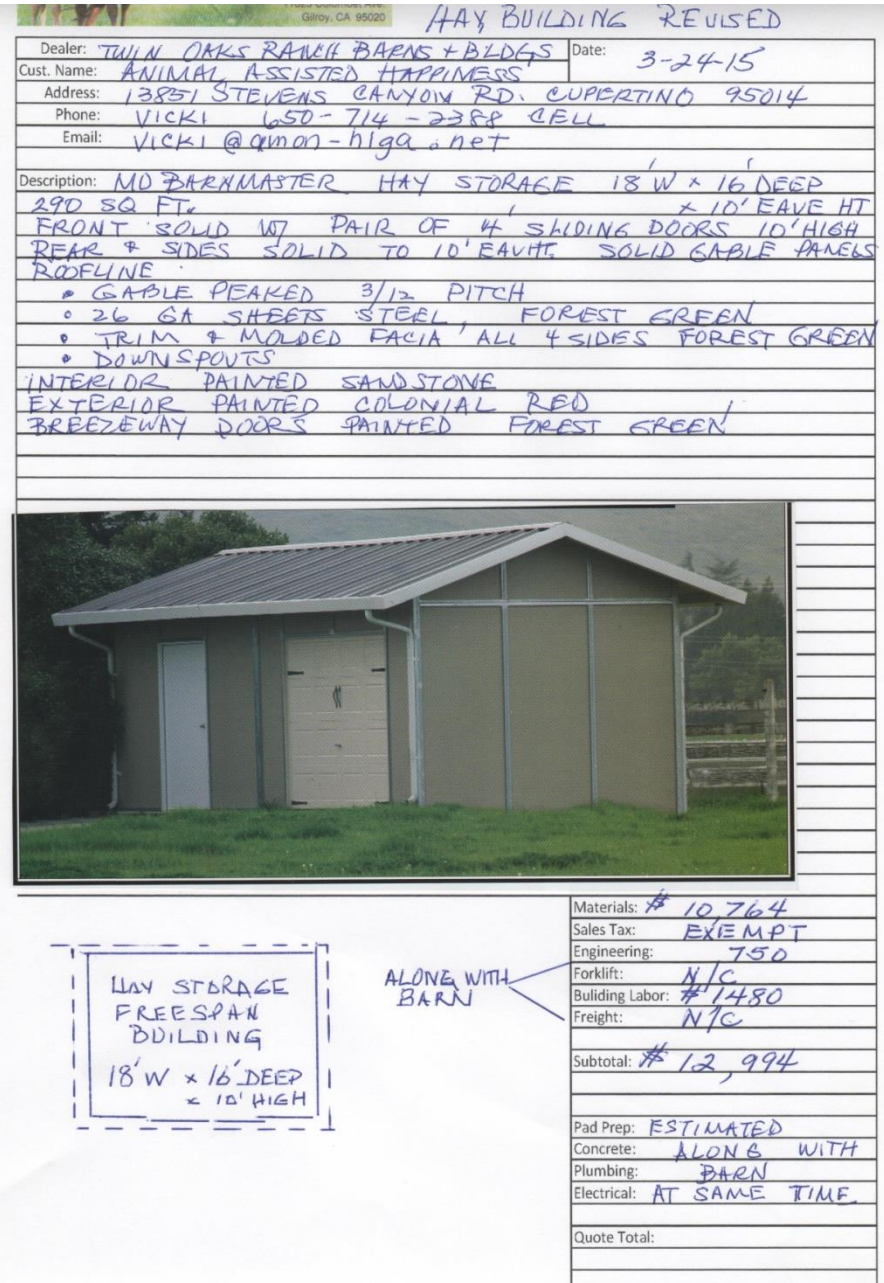 Gilroy, CA 95020
HAY BUILDING REVISED
Dealer: TWIN OAKS RANCH BARNS + BLDGS
Date: 3-24-15
Cust. Name: ANIMAL ASSISTED HAPPINESS
Address: 13851 STEVENS CANYON RD. CUPERTINO 95014
Phone: VICKI 650-714-2388 CELL
Email: VICKI @amon-higa.net
Description: MD BARNMASTER HAY STORAGE 18'W x 16'DEEP
290 SQ FT. x 10' EAVE HT
FRONT SOLID W/ PAIR OF 4' SLIDING DOORS 10'HIGH
REAR & SIDES SOLID TO 10'EAVHT. SOLID GABLE PANELS
ROOFLINE
• GABLE PEAKED 3/12 PITCH
• 26 GA SHEETS STEEL, FOREST GREEN
• TRIM & MOLDED FACIA ALL 4 SIDES FOREST GREEN
• DOWNSPOUTS
INTERIOR PAINTED SANDSTONE
EXTERIOR PAINTED COLONIAL RED
BREEZEWAY DOORS PAINTED FOREST GREEN
HAY STORAGE
FREESPAN
BUILDING
18'W x 16'DEEP
x 10' HIGH
ALONG WITH
BARN
Materials: $ 10,764
Sales Tax: EXEMPT
Engineering: 750
Forklift: N/C
Buliding Labor: $ 1480
Freight: N/C
Subtotal: $ 12,994
Pad Prep: ESTIMATED
Concrete: ALONG WITH
Plumbing: BARN
Electrical: AT SAME TIME.
Quote Total: